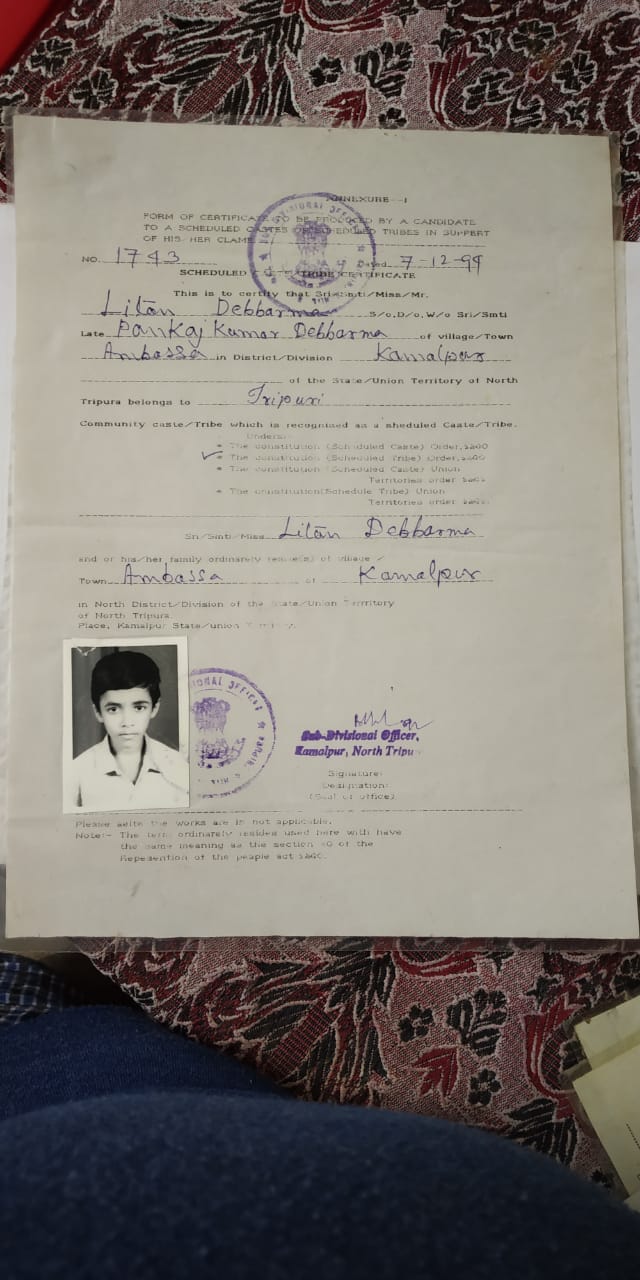 ANNEXURE--I
FORM OF CERTIFICATE TO BE PRODUCED BY A CANDIDATE
TO A SCHEDULED CASTES OR SCHEDULED TRIBES IN SUPPERT
OF HIS HER CLAME
NO. 1743 Dated 7-12-99
SCHEDULED CASTE/TRIBE CERTIFICATE
This is to certify that Sri/Smti/Miss/Mr.
Litan Debbarma S/o,D/o,W/o Sri/Smti
Late Pankaj Kumar Debbarma of village/Town
Ambassa in District/Division Kamalpur
of the State/Union Territory of North
Tripura belongs to Tripuri
Community caste/Tribe which is recognised as a sheduled Caste/Tribe.
Under:
* The constitution (Scheduled Caste) Order,
* The constitution (Scheduled Tribe) Order,
* The constitution (Scheduled Caste) Union
Territories order
* The constitution(Schedule Tribe) Union
Territories order
Sri/Smti/Miss Litan Debbarma
and or his/her family ordinarily reside(s) of village /
Town Ambassa of Kamalpur
in North District/Division of the State/Union Territory
of North Tripura.
Place, Kamalpur State/union Territory.
Sub-Divisional Officer,
Kamalpur, North Tripu
Signature:
Designation:
(Seal of office)
Please the works are is not applicable.
Note:- The term ordinarely resides used here with have
the same meaning as the section of the
of the people act